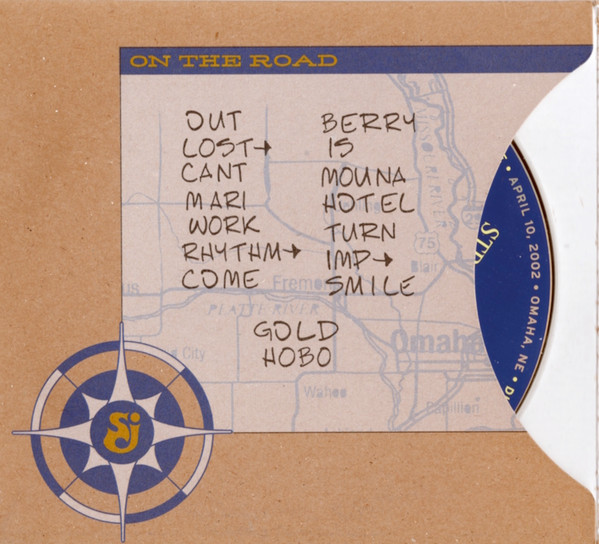 ON THE ROAD
OUT
LOST→
CANT
MARI
WORK
RHYTHM→
COME
BERRY
IS
MOUNA
HOTEL
TURN
IMP→
SMILE
GOLD
HOBO
MISSOURI RIVER
75
Blair
Fremon
PLATTE RIVER
City
Omaha
Wahoo
Papillion
• APRIL 10, 2002 • OMAHA, NE •
ST
SJ